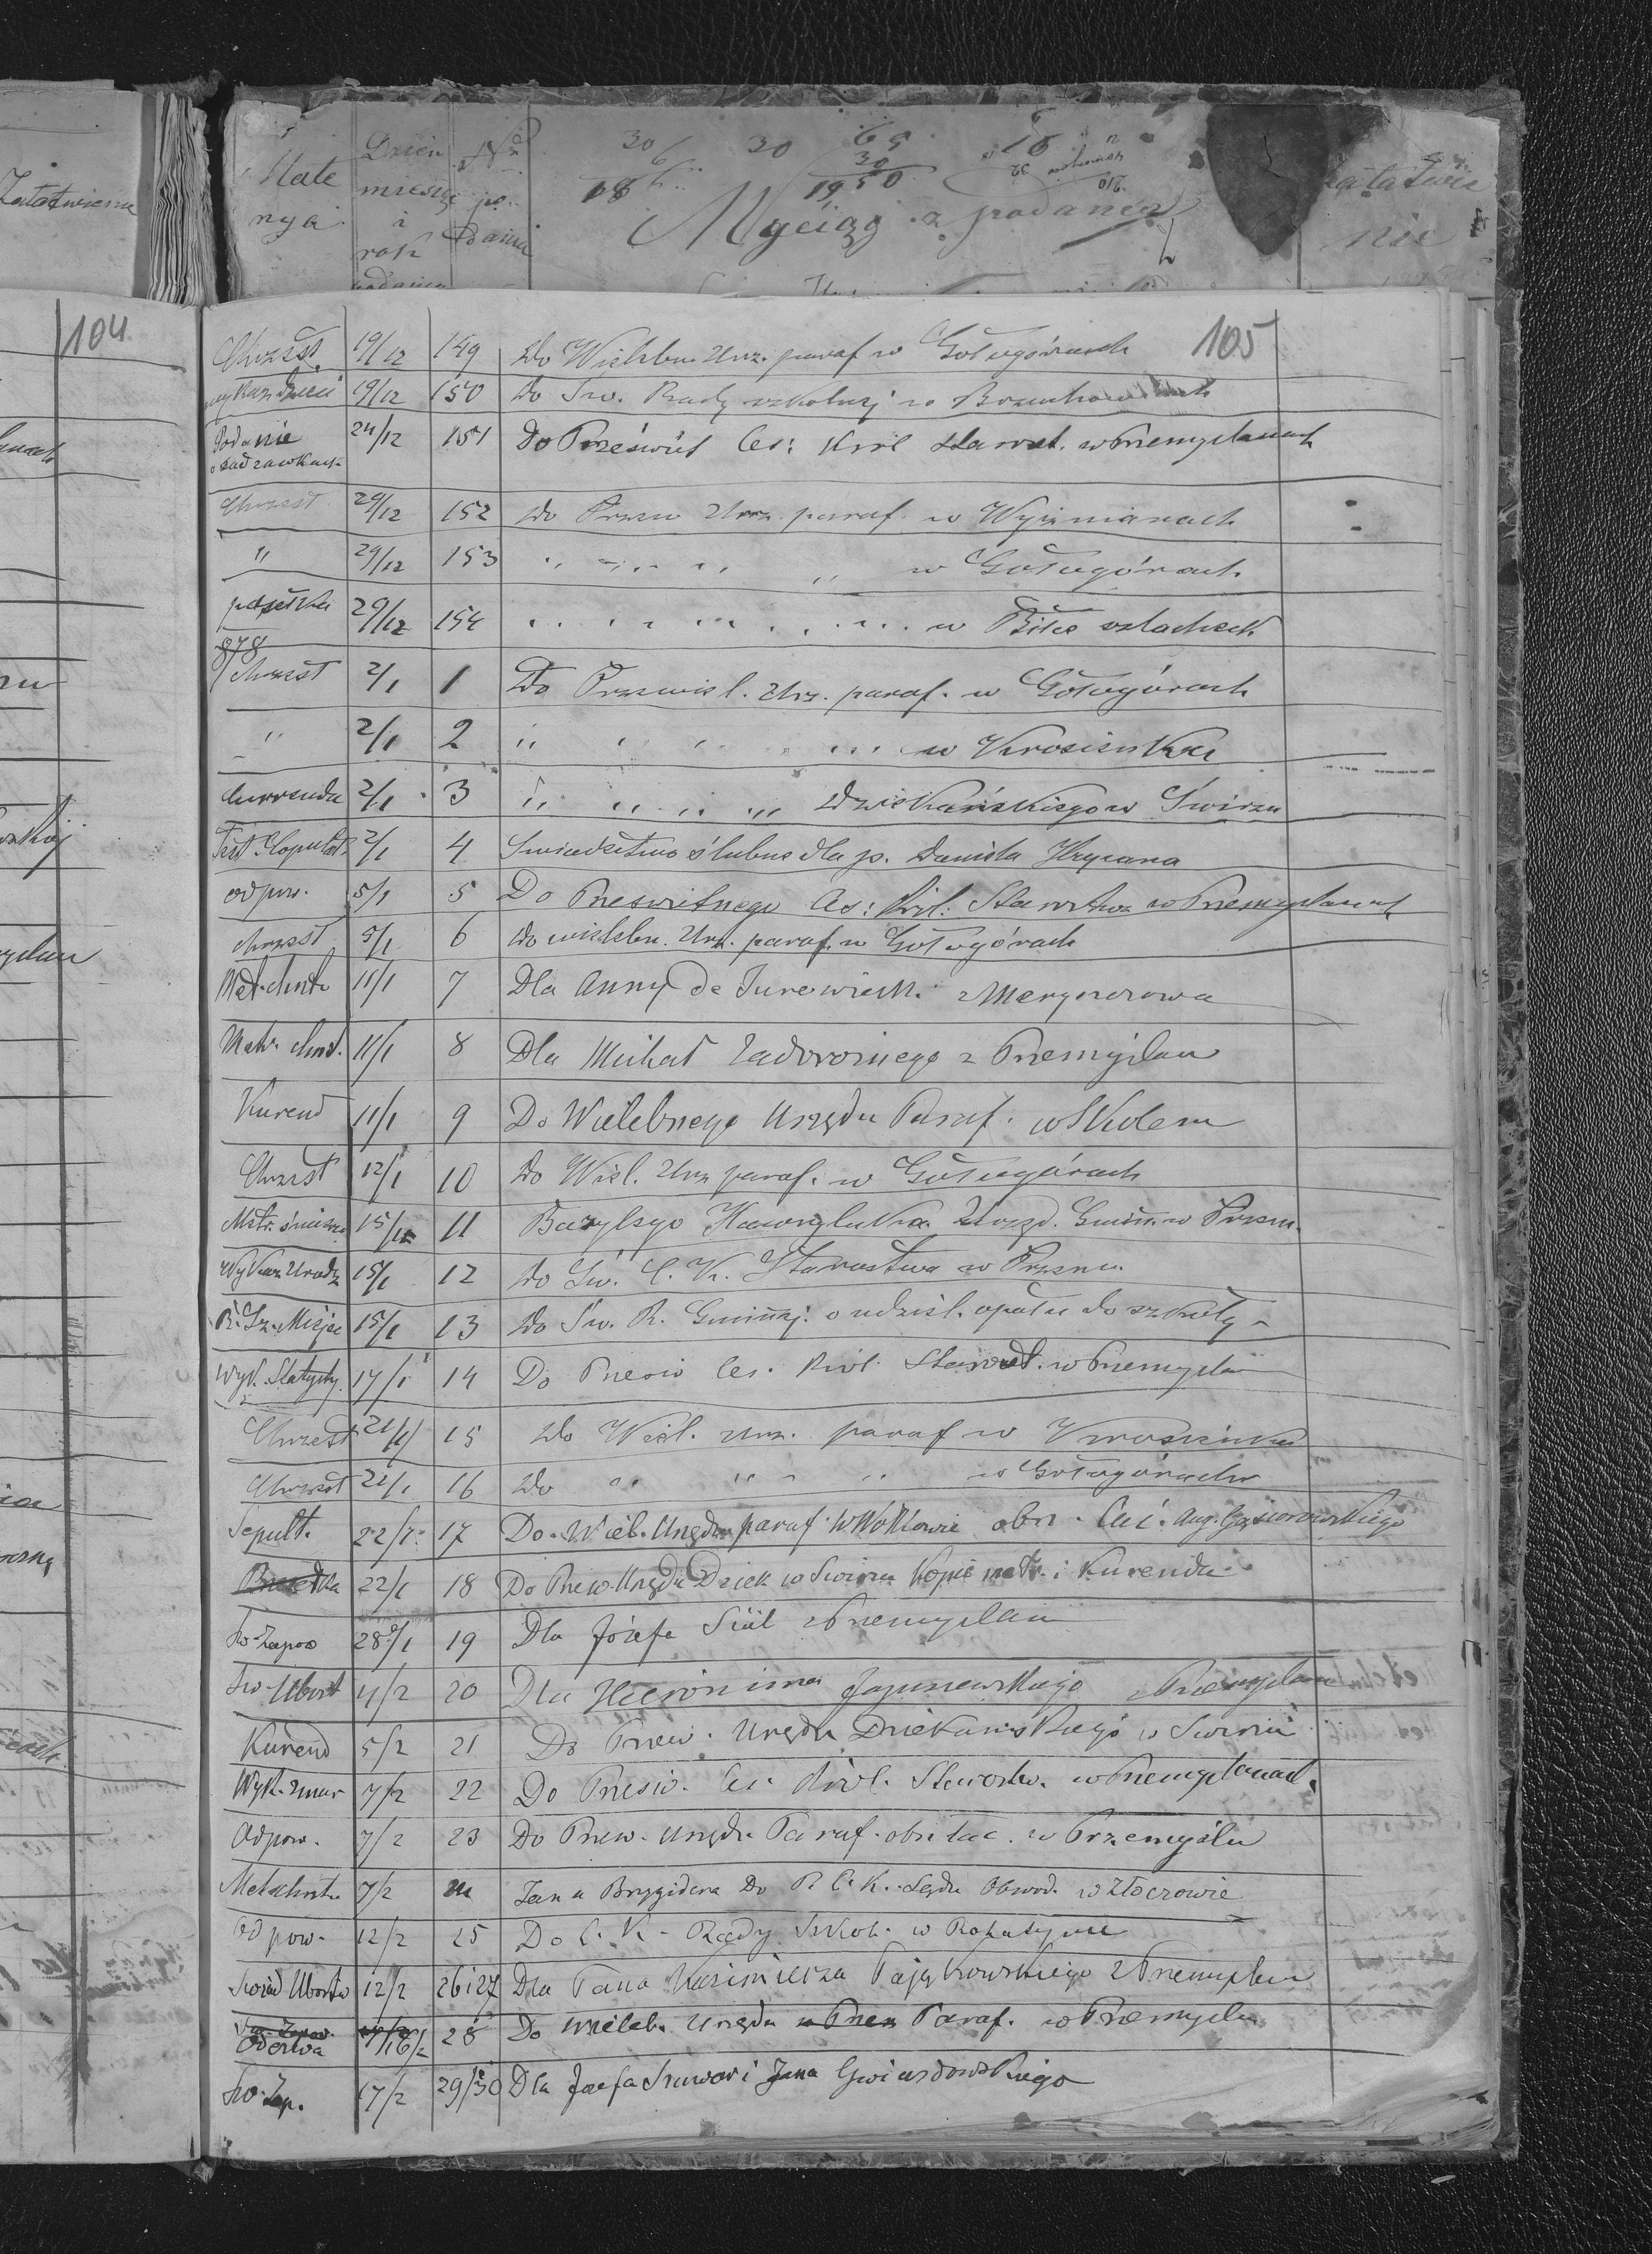 Mate Dzień Nr 30 30 65 18
ryja miesiąc po 186 30
i dania 1950
rok Wyciąg z podania Załatwie
podania nie
Załatwienie
104
105
Chrzest 19/12 149 Do Wielebn. Urz. paraf w Gołogórach
wykaz dzieci 19/12 150 Do Św. Rady szkolnej w
Podanie 24/12 151 Do Przeświet Ces: Król Starost. w Przemyślanach
o sadzawkach
Chrzest 29/12 152 do Przew Urz. paraf. w Wyżnianach
" 29/12 153 " " " " w Gołogórach
29/12 154 " " " " " w Biłce szlacheck
878
Chrzest 2/1 1 Do Przewiel. Urz. paraf. w Gołogórach
" 2/1 2 " " " " " w Krosienku
Currenda 2/1 3 " " " " Dziekańskiego w Świrzu
Test. Copulat. 2/1 4 Swiadectwo ślubne dla p. Daniela Hrycana
odpow. 5/1 5 Do Prześwitnego Ces: Król: Starostwa w Przemyślanach
chrzest 5/1 6 do wielebn. Urz. paraf. w Gołogórach
Met. chrzt. 11/1 7 Dla Anny de
Metr. chrzt. 11/1 8 Dla Michał Zadorożnego z Przemyślan
Kurend 11/1 9 Do Wielebnego Urzędu Paraf. w Skolem
Chrzest 12/1 10 Do Wiel. Urz paraf. w Gołogórach
Metr. śmierci 15/1 11 Bazylego Urzęd. Gmin. w Przem.
Wykaz Urodz 15/1 12 do Św. C. K. Starostwa w Przem.
R. Sz. Miejsc 15/1 13 Do Św. R. Gminnej. o udziel. opału do szkoły
Wyk. Statysty. 17/1 14 Do Prześw Ces. Król. Starost. w Przemyślan
Chrzest 21/1 15 Do Wiel. Urz. paraf w Krosienku
Chrzest 21/1 16 Do " " " w Gołogórach
Sepult. 22/1 17 Do Wieb. Urzędu paraf. w Wołkowie obrz. Łać. Aug. Gąsiorowskiego
22/1 18 Do Przew. Urzędu Dziek w Swirzu Kopie metr. i Kurenda
Św. Zapow 28/1 19 Dla Józefa z Przemyślan
Św. Ubost 4/2 20 Dla Hieronima z Przemyślan
Kurend 5/2 21 Do Przew. Urzędu Dziekańskiego w Swirzu
Wyk. zmar 7/2 22 Do Prześw. Ces. Król. Starostw. w Przemyślanach
Odpow. 7/2 23 Do Przew. Urzędu Paraf. obrz łac. w Przemyślu
Met chrztu 7/2 24 Jana Brygidera Do P. C. K. Sądu Obwod. w Złoczowie
Odpow. 12/2 25 Do C. K. Rady Szkol. w Rohatynie
Świad Ubostw 12/2 26 i 27 Dla Pana Kazimierza Pająkowskiego z Przemyślan
Odezwa 16/2 28 Do Wieleb. Urzędu w Przem Paraf. w Przemyślu
Św. Zap. 17/2 29/30 Dla Józefa i Jana Gwiazdowskiego